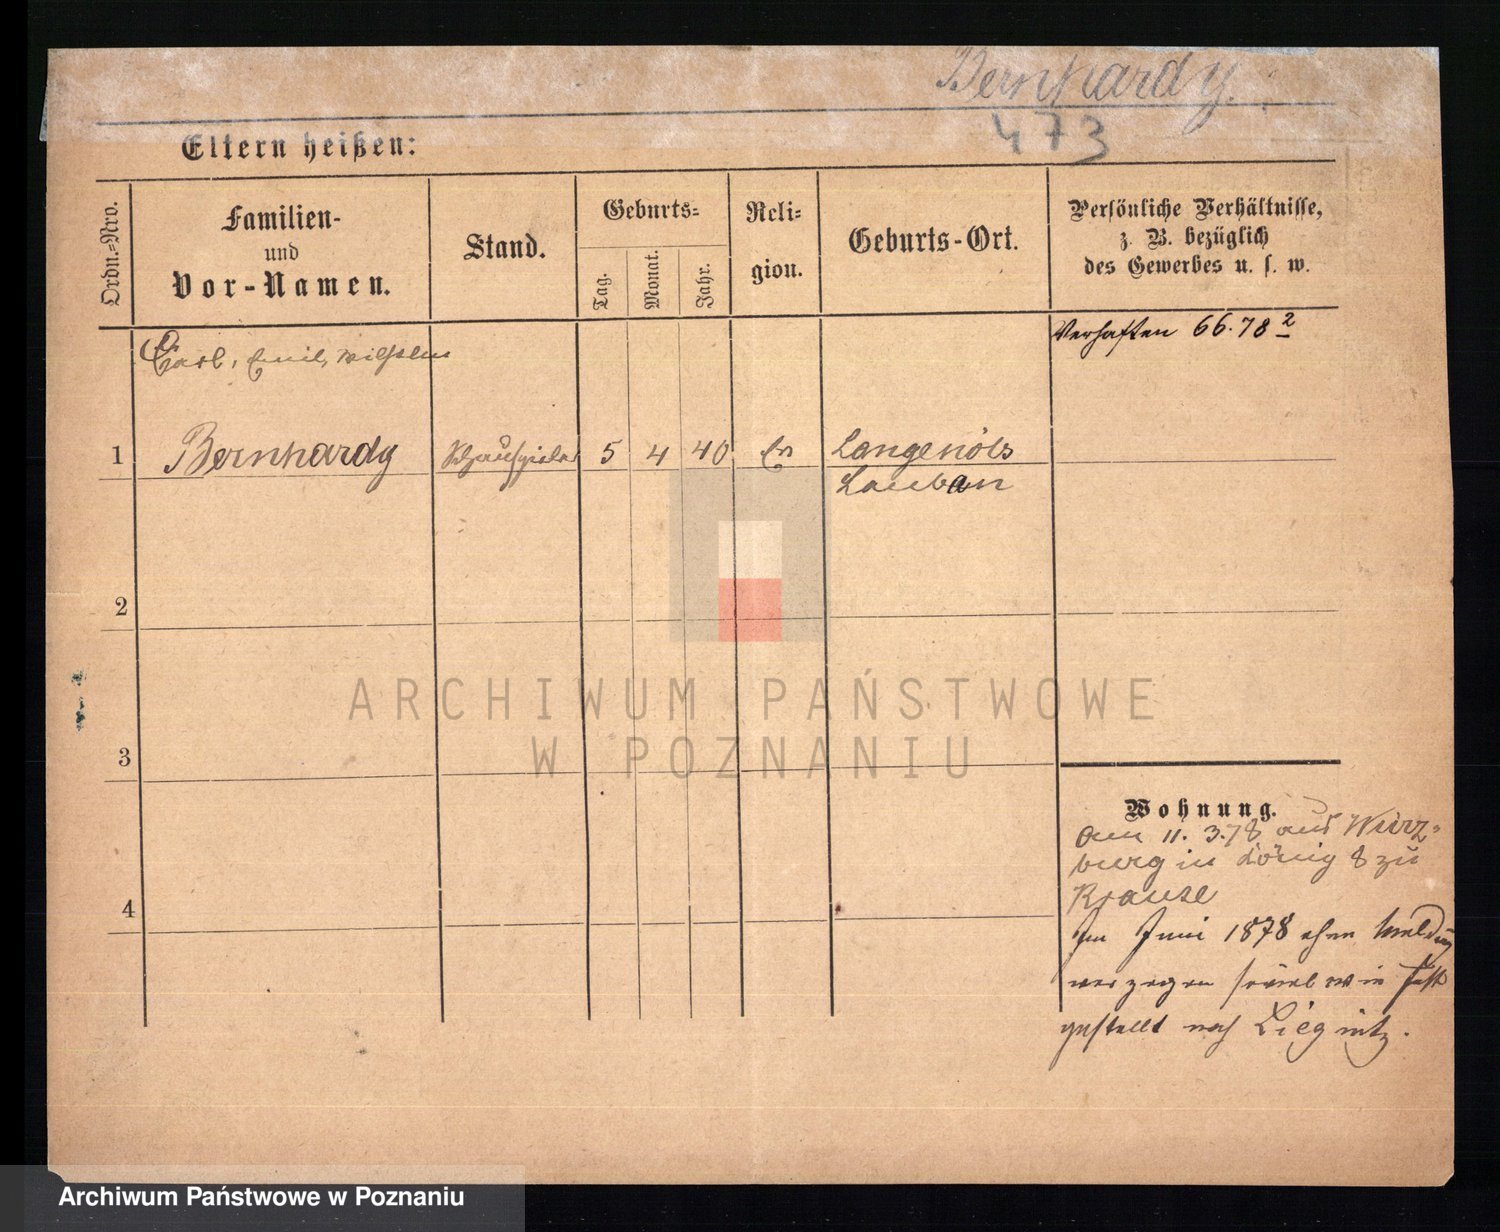 Bernhardy.
473
Eltern heißen:
Ordn.=Nro.
Familien-
und
Vor-Namen.
Stand.
Geburts=
Tag.
Monat.
Jahr.
Reli=
gion.
Geburts-Ort.
Persönliche Verhältnisse,
z. B. bezüglich
des Gewerbes u. s. w.
Carl, Emil, Wilhelm
Verhalten 66.78 2
1 Bernhardy Schauspieler 5 4 40 Ev Langenöls
Lauban
2
3
4
Wohnung.
am 11. 3.78 aus Würz=
burg in König 8 zu
Krause
Im Juni 1878 ohne Meldung
verzogen soviel wie fest
gestellt nach Liegnitz.
ARCHIWUM PAŃSTWOWE
W POZNANIU
Archiwum Państwowe w Poznaniu